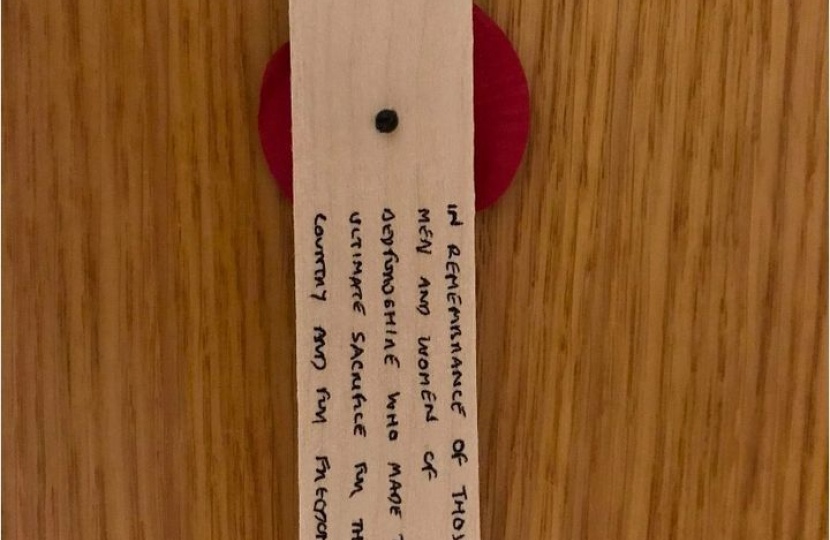 IN REMEMBRANCE OF THOS
MEN AND WOMEN OF
BEDFORDSHIRE WHO MADE
ULTIMATE SACRIFICE FOR TH
COUNTRY AND FOR FREEDOM